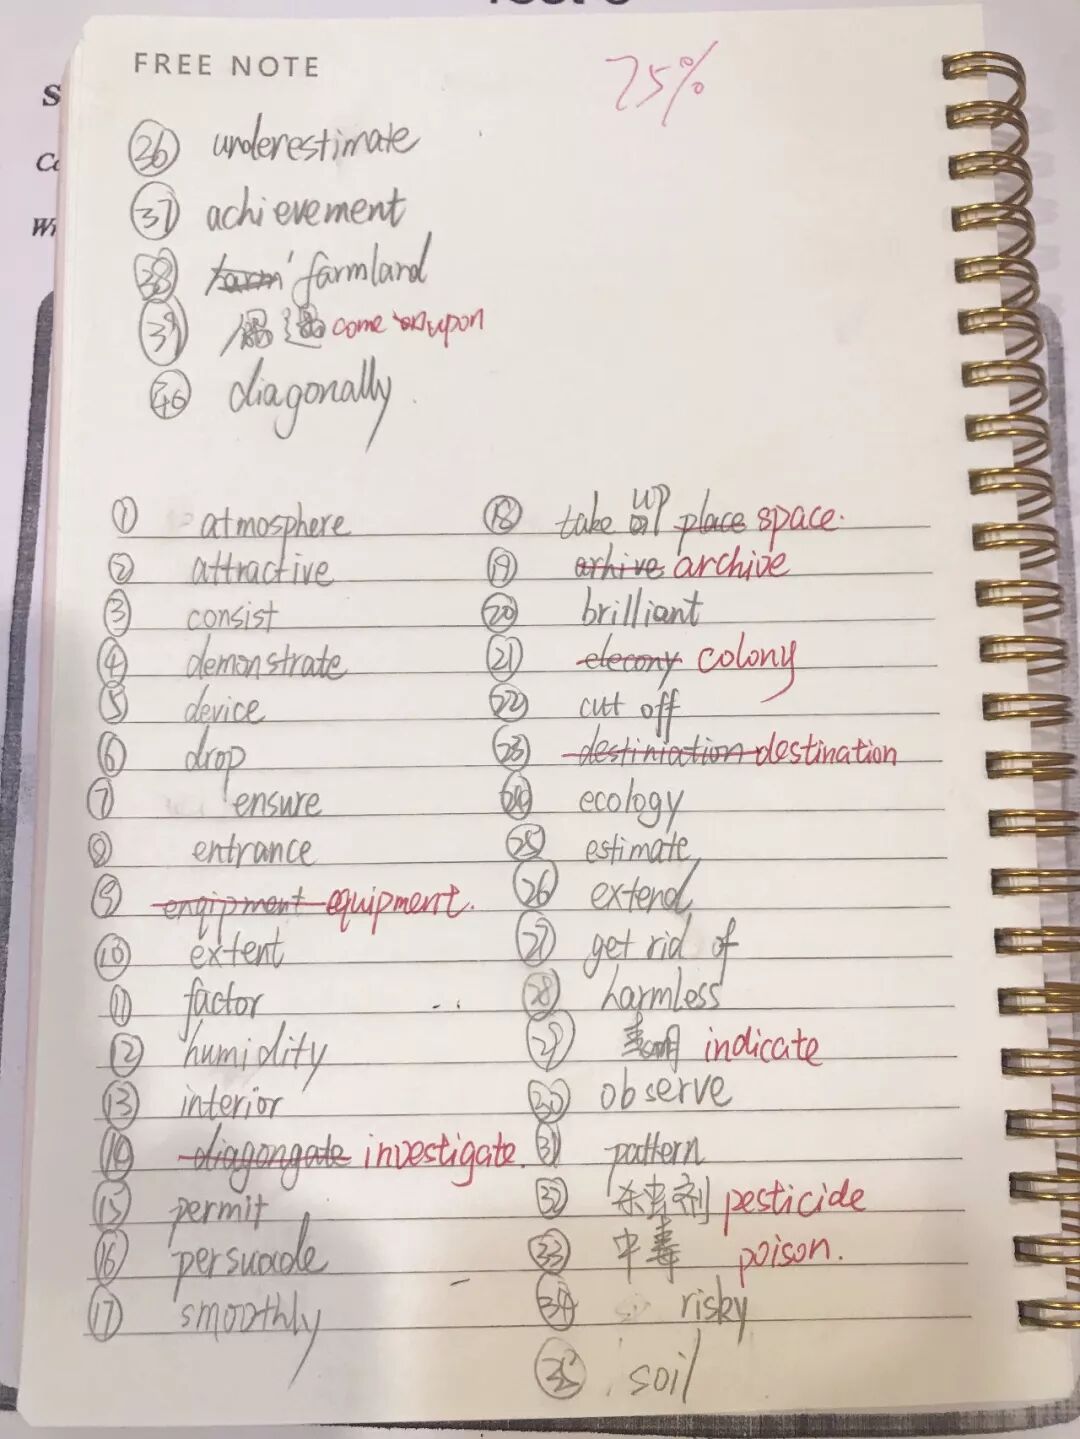 FREE NOTE
75%
36 underestimate
37 achievement
38 farm farmland
39 偶遇 come on upon
40 diagonally.
① atmosphere
② attractive
③ consist
④ demonstrate
⑤ device
⑥ drop
⑦ ensure
⑧ entrance
⑨ enqipment equipment.
⑩ extent
⑪ factor
⑫ humidity
⑬ interior
⑭ diagongate investigate.
⑮ permit
⑯ persuade
⑰ smoothly
⑱ take up place space.
⑲ arhive archive
⑳ brilliant
㉑ elecony colony
㉒ cut off
㉓ destiniation destination
㉔ ecology
㉕ estimate
㉖ extend
㉗ get rid of
㉘ harmless
㉙ 表明 indicate
㉚ observe
㉛ pattern
㉜ 杀虫剂 pesticide
㉝ 中毒 poison.
㉞ risky
㉟ soil